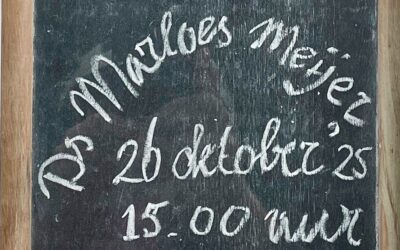 Ds Marloes Meijer
26 oktober '25
15.00 uur